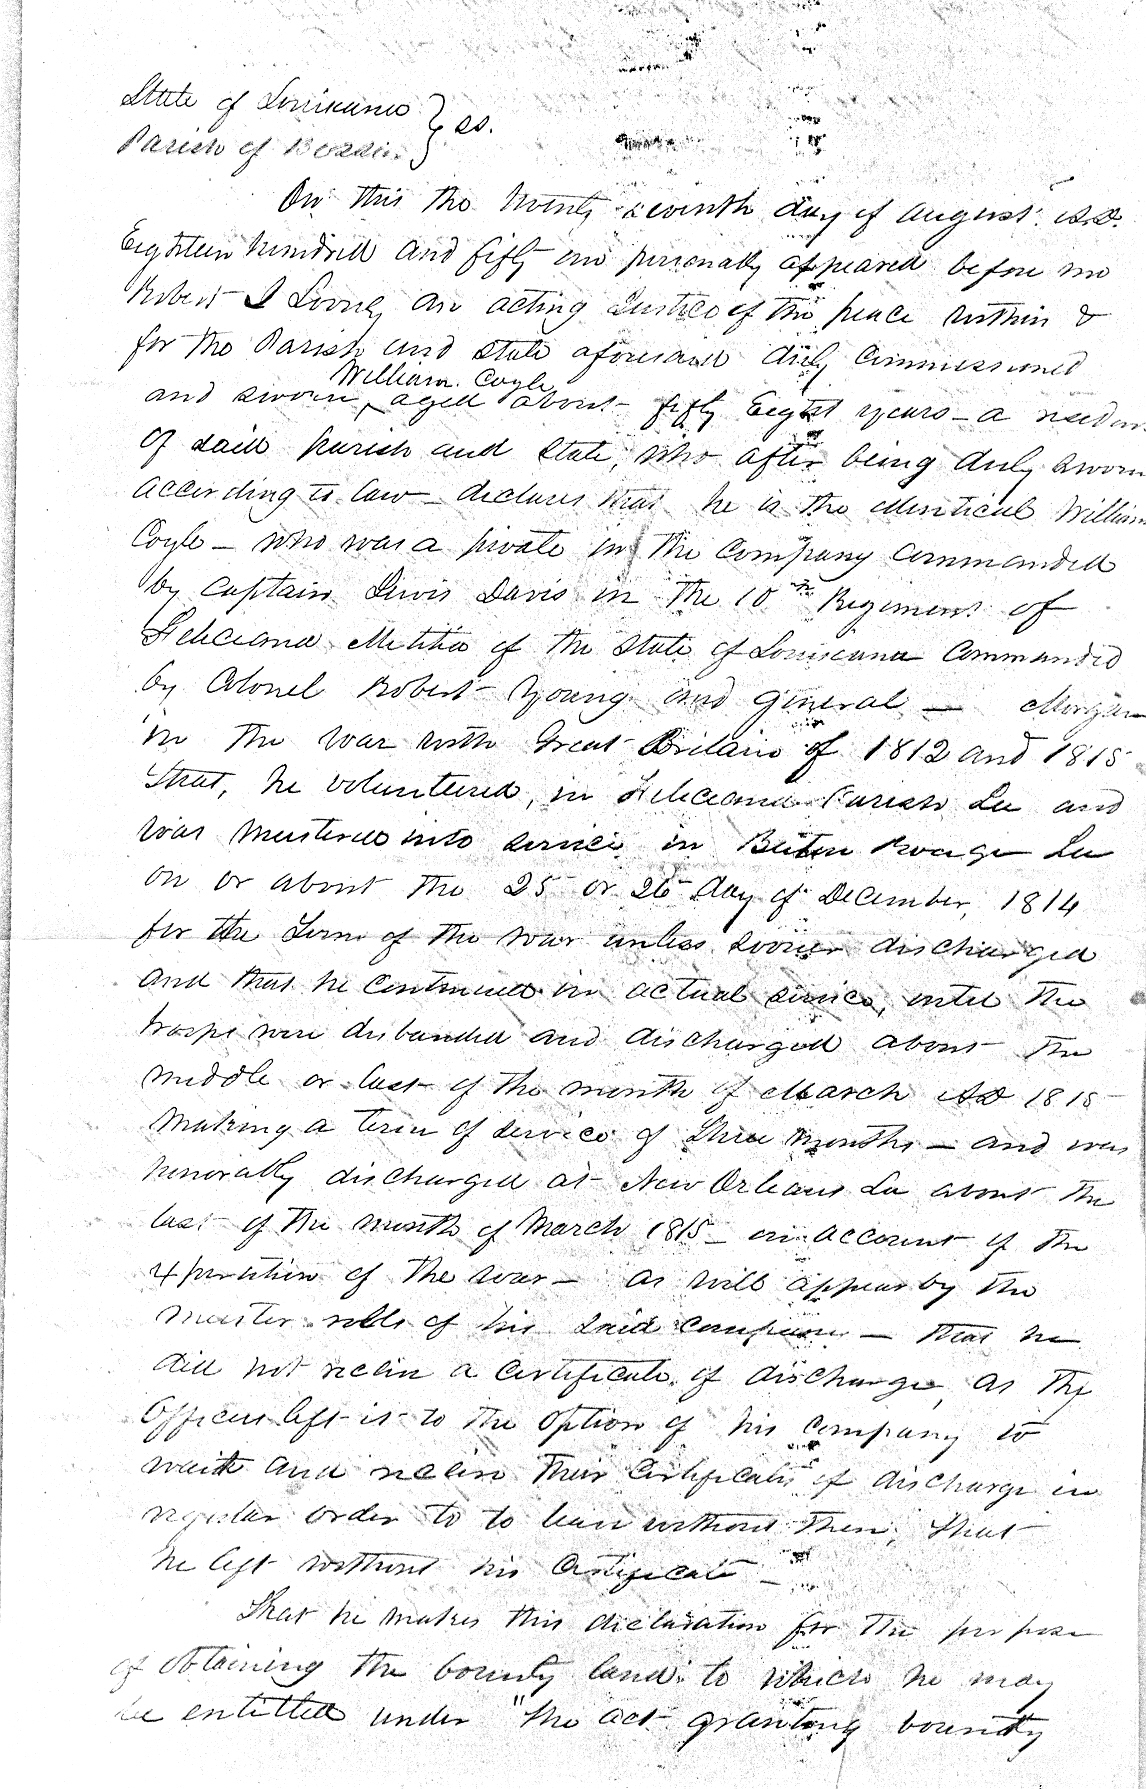 State of Louisiana } ss.
Parish of Bossier }
On this the twenty seventh day of august A.D.
Eighteen hundred and fifty one personally appeared before me
Robert J Looney an acting Justice of the peace within &
for the Parish and state aforesaid duly Commissioned
William Coyle
and sworn ^ aged about fifty Eight years – a residen
of said parish and State, who after being duly sworn
according to law declares that he is the identical William
Coyle – who was a private in the Company Commanded
by Captain Lewis Davis in the 10th Regiment of
Feliciana Militia of the State of Louisiana Commanded
by Colonel Robert Young and General — Morgan
in the war with Great Britain of 1812 and 1815
that, he volunteered, in Feliciana Parish La and
was mustered into service in Baton Rouge La
on or about the 25 or 26 day of December, 1814
for the Term of the war unless sooner discharged
and that he Continued in actual service, until the
troops were disbanded and discharged about the
middle or last of the month of March AD 1815
Making a term of service of three months – and was
honorably discharged at New Orleans La about the
last of the month of March 1815 – on account of the
expiration of the war – as will appear by the
muster rolls of his said Company – that he
did not receive a Certificate of discharge, as the
Officers left it to the option of his Company to
wait and receive their Certificates of discharge in
regular order or to leave without them, that
he left without his Certificate –
That he makes this declaration for the purpose
of obtaining the bounty land to which he may
be entitled under "the act granting bounty